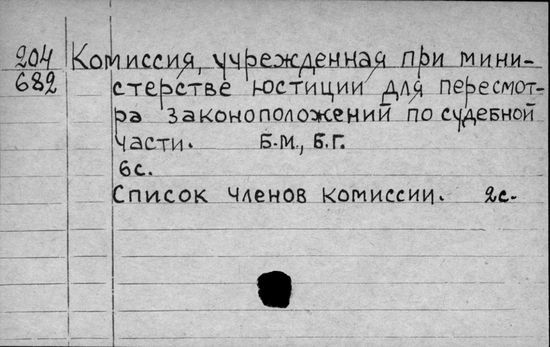 204 Комиссия, учрежденная при мини-
682 стерстве юстиции для пересмот-
ра законоположений по судебной
части. Б.М., Б.Г.
6с.
Список членов комиссии. 2с.